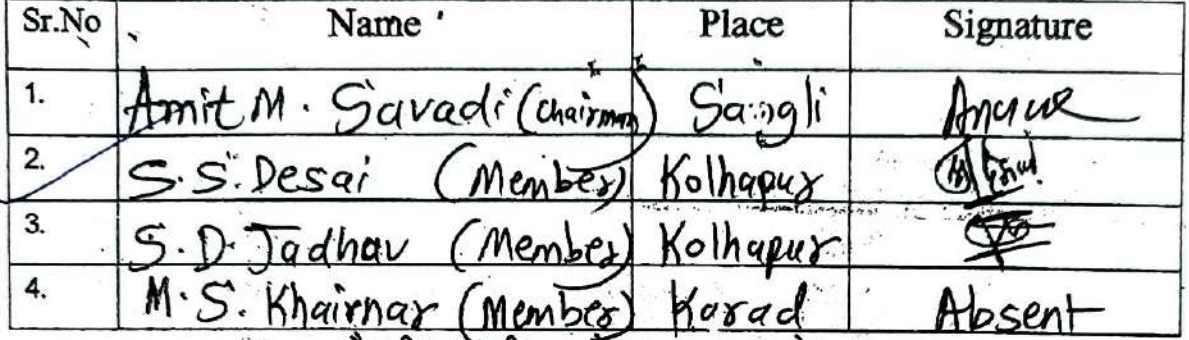 Sr.No Name Place Signature
1. Amit M. Savadi (Chairman) Sangli
2. S.S. Desai (Member) Kolhapur
3. S.D. Jadhav (Member) Kolhapur
4. M.S. Khairnar (Member) Karad Absent